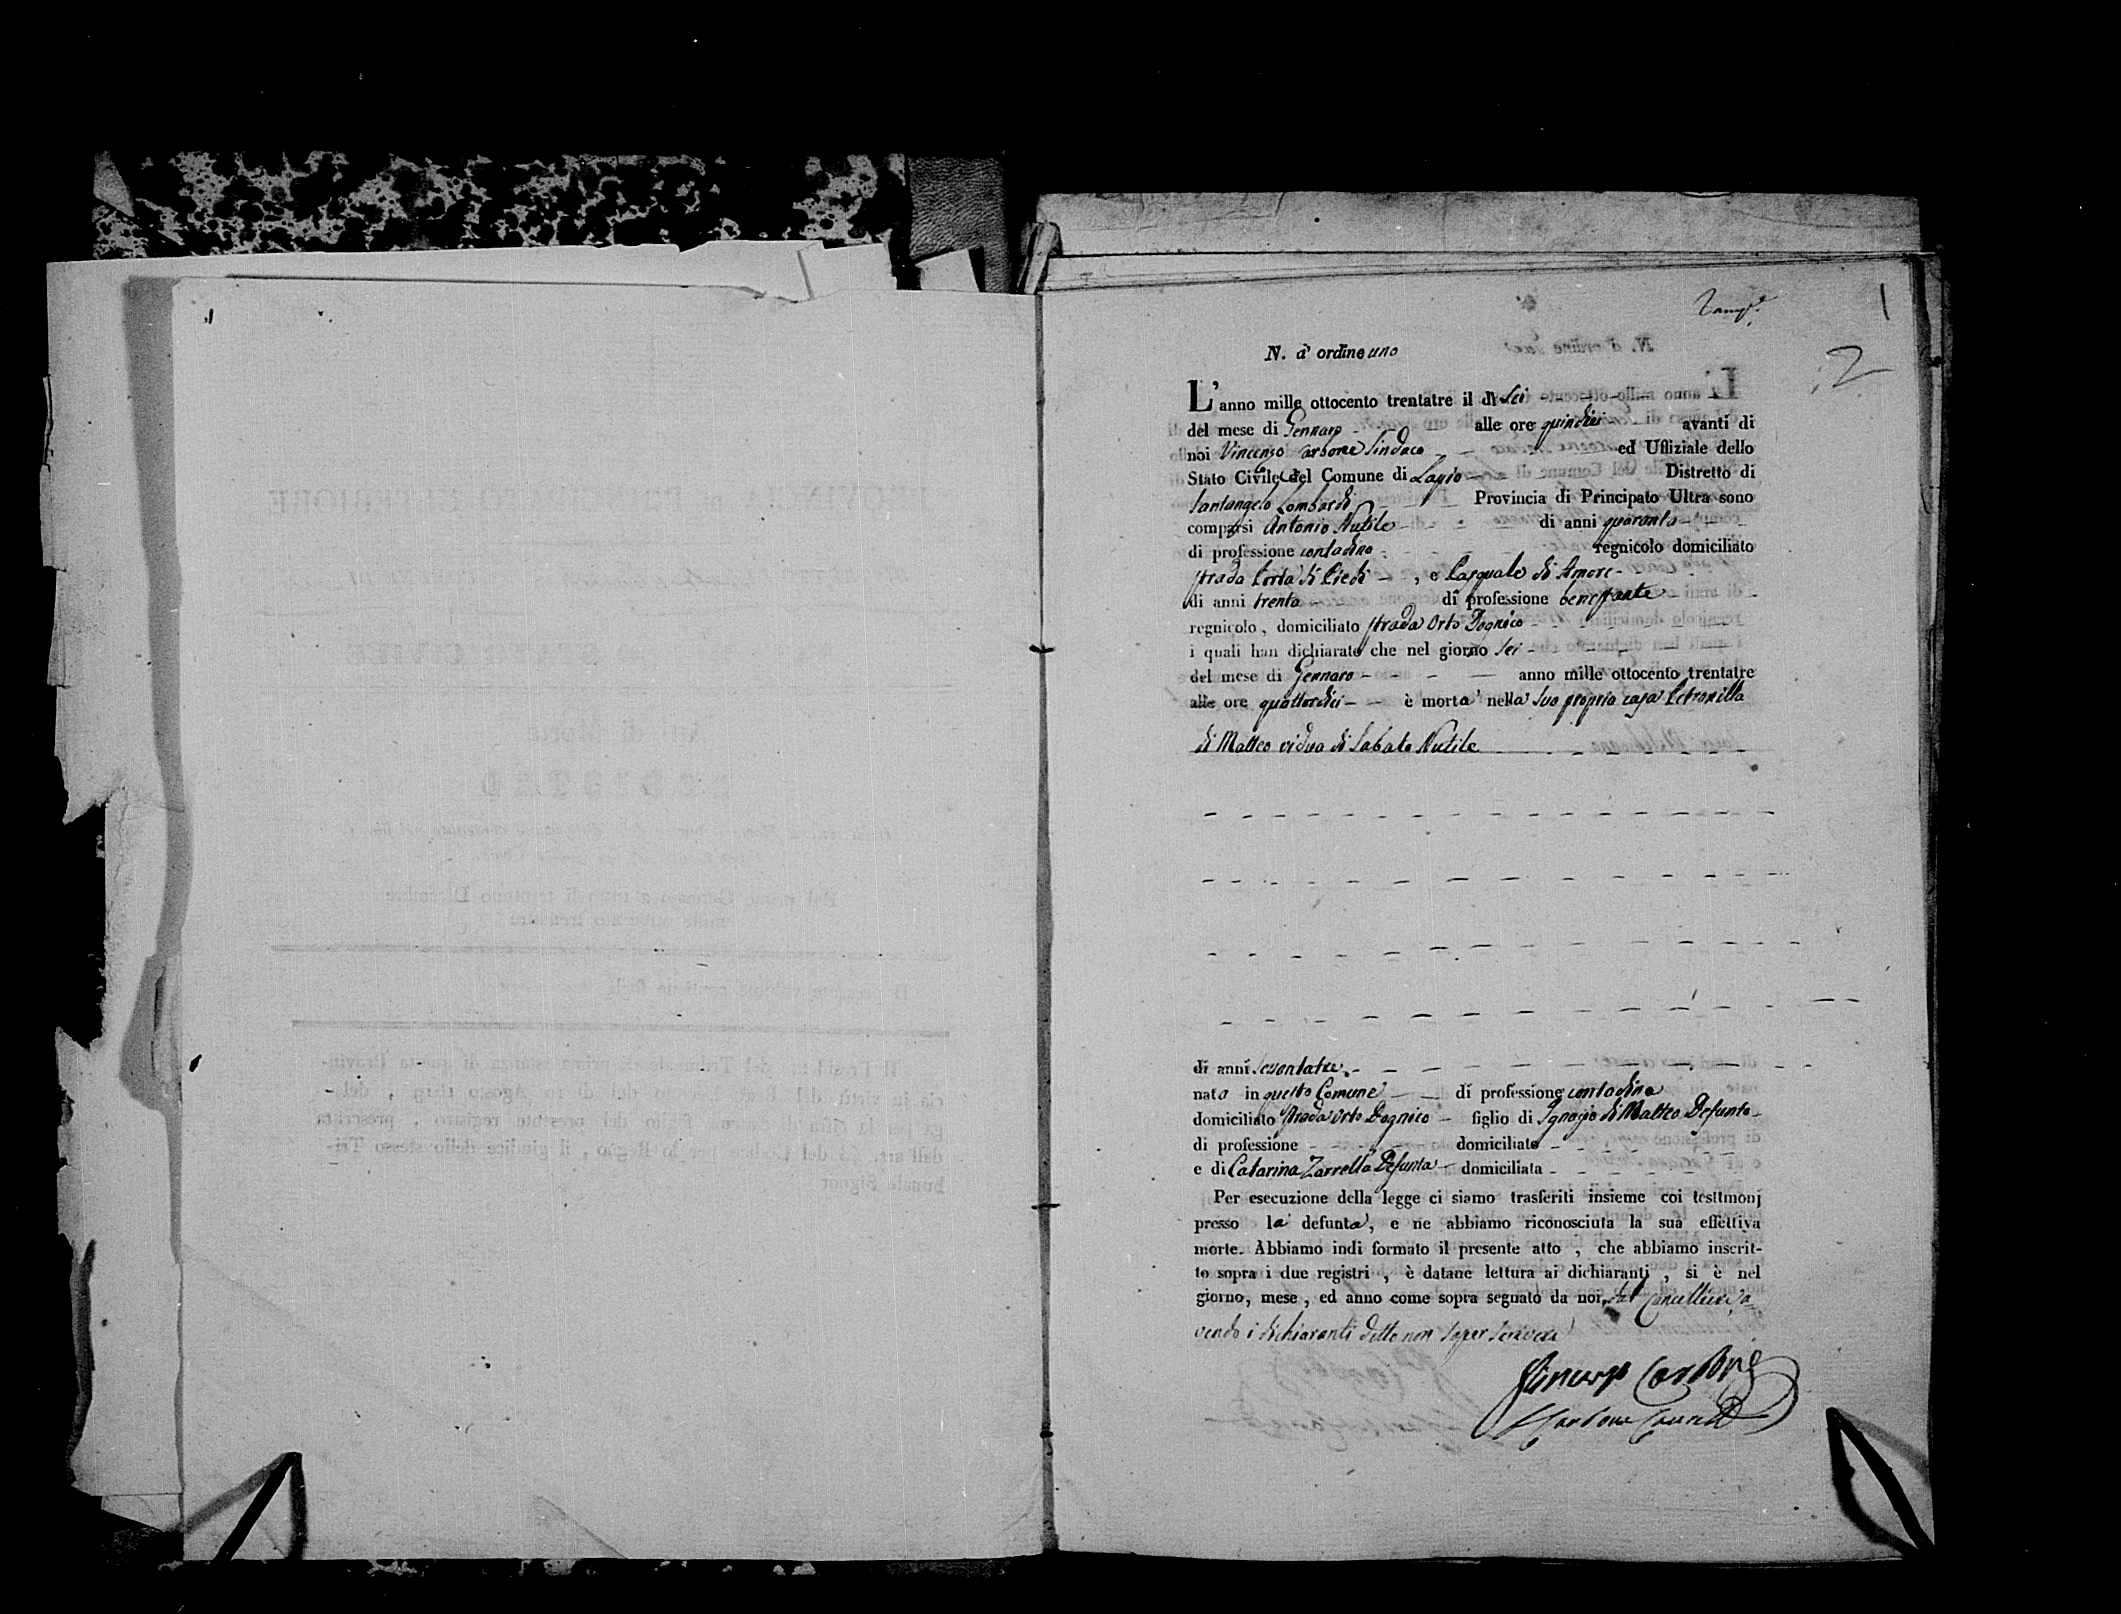 1
2
N. d'ordine uno
L'anno mille ottocento trentatre il dì sei
del mese di Gennaro alle ore quindici avanti di
noi Vincenzo Carbone Sindaco ed Uffiziale dello
Stato Civile del Comune di Lapio Distretto di
Santangelo Lombardi Provincia di Principato Ultra sono
comparsi Antonio Nutile di anni quaranta
di professione contadino regnicolo domiciliato
strada Porta di Piedi , e Pasquale di Amore
di anni trenta di professione benestante
regnicolo, domiciliato strada Orto Dognico
i quali han dichiarato che nel giorno sei
del mese di Gennaro anno mille ottocento trentatre
alle ore quattordici è morta nella sua propria casa Petronilla
di Matteo vidua di Sabato Nutile
di anni sessantatre
nata in questo Comune di professione contadina
domiciliato strada Orto Dognico figlio di Ignazio di Matteo Defunto
di professione domiciliato
e di Catarina Zarrella Defunta domiciliata
Per esecuzione della legge ci siamo trasferiti insieme coi testimonj
presso la defunta, e ne abbiamo riconosciuta la sua effettiva
morte. Abbiamo indi formato il presente atto , che abbiamo inscrit-
to sopra i due registri , è datane lettura ai dichiaranti , si è nel
giorno, mese , ed anno come sopra segnato da noi, dal Cancelliere, a
vendo i dichiaranti detto non saper scrivere
Vincenzo Carbone
Carbone Cancell